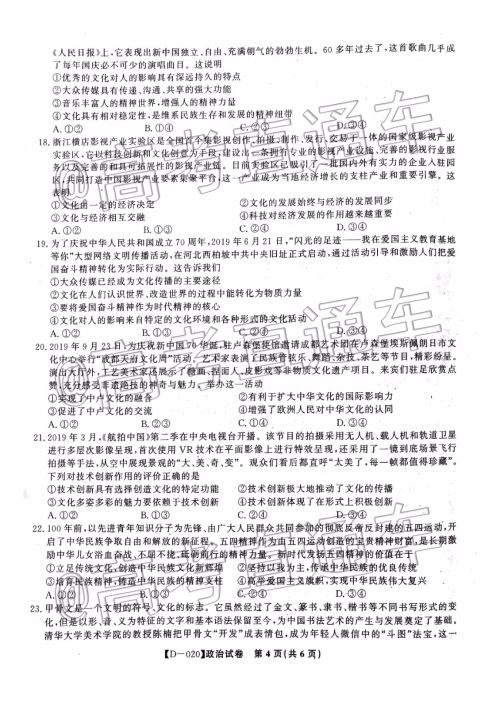 《人民日报》上，它表现出新中国独立、自由、充满朝气的勃勃生机。60 多年过去了，这首歌曲几乎成
了每年国庆必不可少的演唱曲目。这说明
①优秀的文化对人的影响具有深远持久的特点
②大众传媒具有传递、沟通、共享文化的强大功能
③音乐丰富人的精神世界，增强人的精神力量
④文化具有相对稳定性，是维系民族生存和发展的精神纽带
A. ①② B. ①③ C. ②④ D. ③④
18. 浙江横店影视产业实验区是全国首个集影视创作、拍摄、制作、发行、交易于一体的国家级影视产业
实验区，它以科技创新和文化创意为手段，建设出一条拥有专业的影视产业设施、规范的影视行业服
务以及完善的和具可拓展性的影视产业链。目前实验区已吸引了一批国内外有实力的企业入驻园
区，共同打造中国影视产业要素集聚平台，这一产业成为当地经济增长的支柱产业和重要引擎。这
表明
①文化由一定的经济决定 ②文化的发展始终与经济的发展同步
③文化与经济相互交融 ④科技对经济发展的作用越来越重要
A. ①② B. ①③ C. ②④ D. ③④
19. 为了庆祝中华人民共和国成立 70 周年，2019 年 6 月 21 日，“闪光的足迹——我在爱国主义教育基地
等你”大型网络文明传播活动，在河北西柏坡中共中央旧址正式启动，通过活动引导和激励人们把爱
国奋斗精神转化为实际行动。这告诉我们
①大众传媒已经成为文化传播的主要途径
②文化在人们认识世界、改造世界的过程中能转化为物质力量
③要将爱国奋斗精神作为时代精神的核心
④文化对人的影响来自特定的文化环境和各种形式的文化活动
A. ①② B. ①③ C. ②④ D. ③④
20. 2019 年 9 月 23 日，为庆祝新中国 70 华诞，驻卢森堡使馆邀请成都艺术团在卢森堡埃斯佩朗日市文
化中心举行“成都天府文化周”活动。艺术家表演了民族管弦乐、舞蹈、杂技、茶艺等节目，精彩纷呈。
演出大厅外，工艺美术家还展示了糖画、捏面人、皮影戏等非物质文化遗产项目。来宾们驻足欣赏点
赞，充分感受非遗绝技的神奇与魅力。举办这一活动
①实现了中卢文化的融合 ②有利于扩大中华文化的国际影响力
③促进了中卢文化的交流 ④增强了欧洲人民对中华文化的认同
A. ①② B. ①④ C. ②③ D. ③④
21. 2019 年 3 月，《航拍中国》第二季在中央电视台开播。该节目的拍摄采用无人机、载人机和轨道卫星
进行多层次影像呈现，首次使用 VR 技术在平面影像上进行特效呈现，还采用了一镜到底场景飞行
拍摄等手法，从空中展现景观的“大、美、奇、变”。观众们看后都直呼“大美了，每一帧都值得珍藏”。
下列对技术创新作用的评价正确的是
①技术创新具有选择创造文化的特定功能 ②技术创新极大地推动了文化传播
③文化多姿多彩的魅力要依赖于技术创新 ④技术创新体现了在形式上积极创新
A. ①② B. ①③ C. ②④ D. ③④
22. 100 年前，以先进青年知识分子为先锋、由广大人民群众共同参加的彻底反帝反封建的五四运动，开启
了中华民族争取自由和解放的新征程。五四精神作为由五四运动创造的宝贵精神财富，是长期激
励中华儿女浴血奋战、不屈不挠、砥砺前行的精神力量。新时代发扬五四精神的价值在于
①立足传统文化，创造中华民族文化新辉煌 ②坚守文化主体，传统中华民族的优良传统
③培育民族精神，铸造中华民族的精神支柱 ④高举爱国主义旗帜，实现中华民族伟大复兴
A. ①② B. ①③ C. ②④ D. ③④
23. 甲骨文是一个文明的符号、文化的标志。它虽然经过了金文、篆书、隶书、楷书等不同书写形式的变
化，但是以形、音、义为特征的文字和基本语法保留至今，为中国书法艺术的产生与发展奠定了基础。
清华大学美术学院的教授陈楠把甲骨文“开发”成表情包，成为年轻人微信中的“斗图”法宝，这一
【D—020】政治试卷 第 4 页(共 6 页)